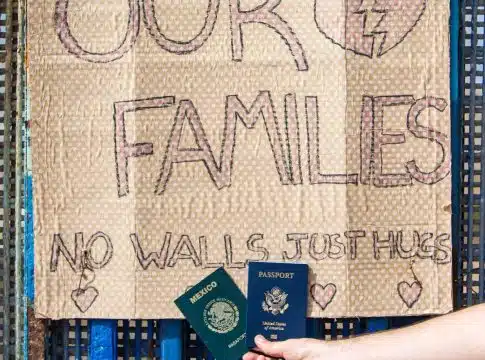 OUR
FAMILIES
NO WALLS JUST HUGS
MEXICO
PASAPORTE
PASSPORT
United States
of America